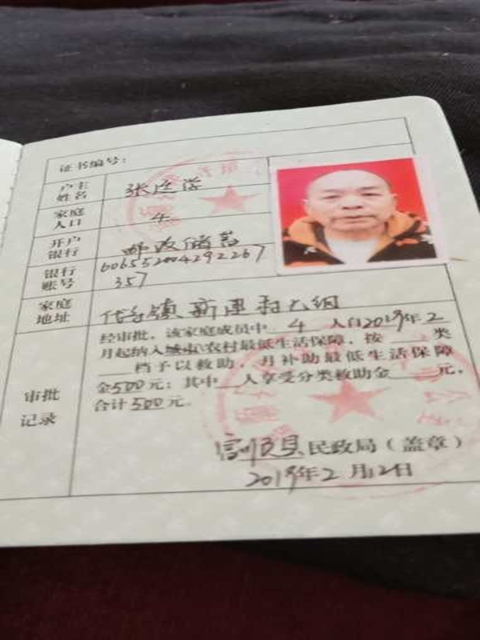 证书编号：
户主姓名 张
家庭人口 4
开户银行 邮政储蓄
银行账号
357
家庭地址 代寺镇 新 村 组
经审批，该家庭成员中 4 人自2019年2
月起纳入城市/农村最低生活保障，按 类
档予以救助，月补助最低生活保障
金500元；其中 人享受分类救助金 元，
合计500元。
审批记录
富顺县民政局（盖章）
2019年2月12日